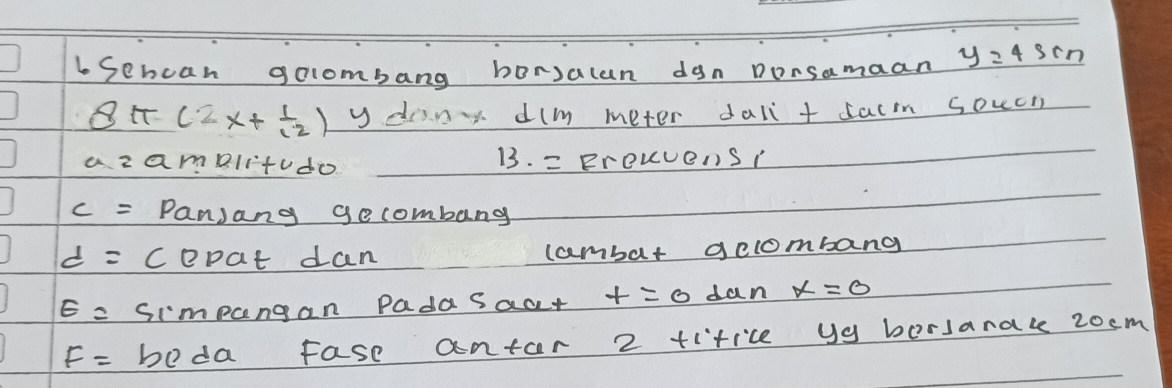 Sebuah gelombang berjalan dgn Persamaan y = 4 sin
8π (2x + 1/12) y dan x dlm meter dan t dalm
a = amplitudo B. = Frekuensi
c = Panjang gelombang
d = Cepat dan lambat gelombang
E = Simpangan Pada Saat t = 0 dan x = 0
F = beda Fase antar 2 titik yg berjarak 20cm